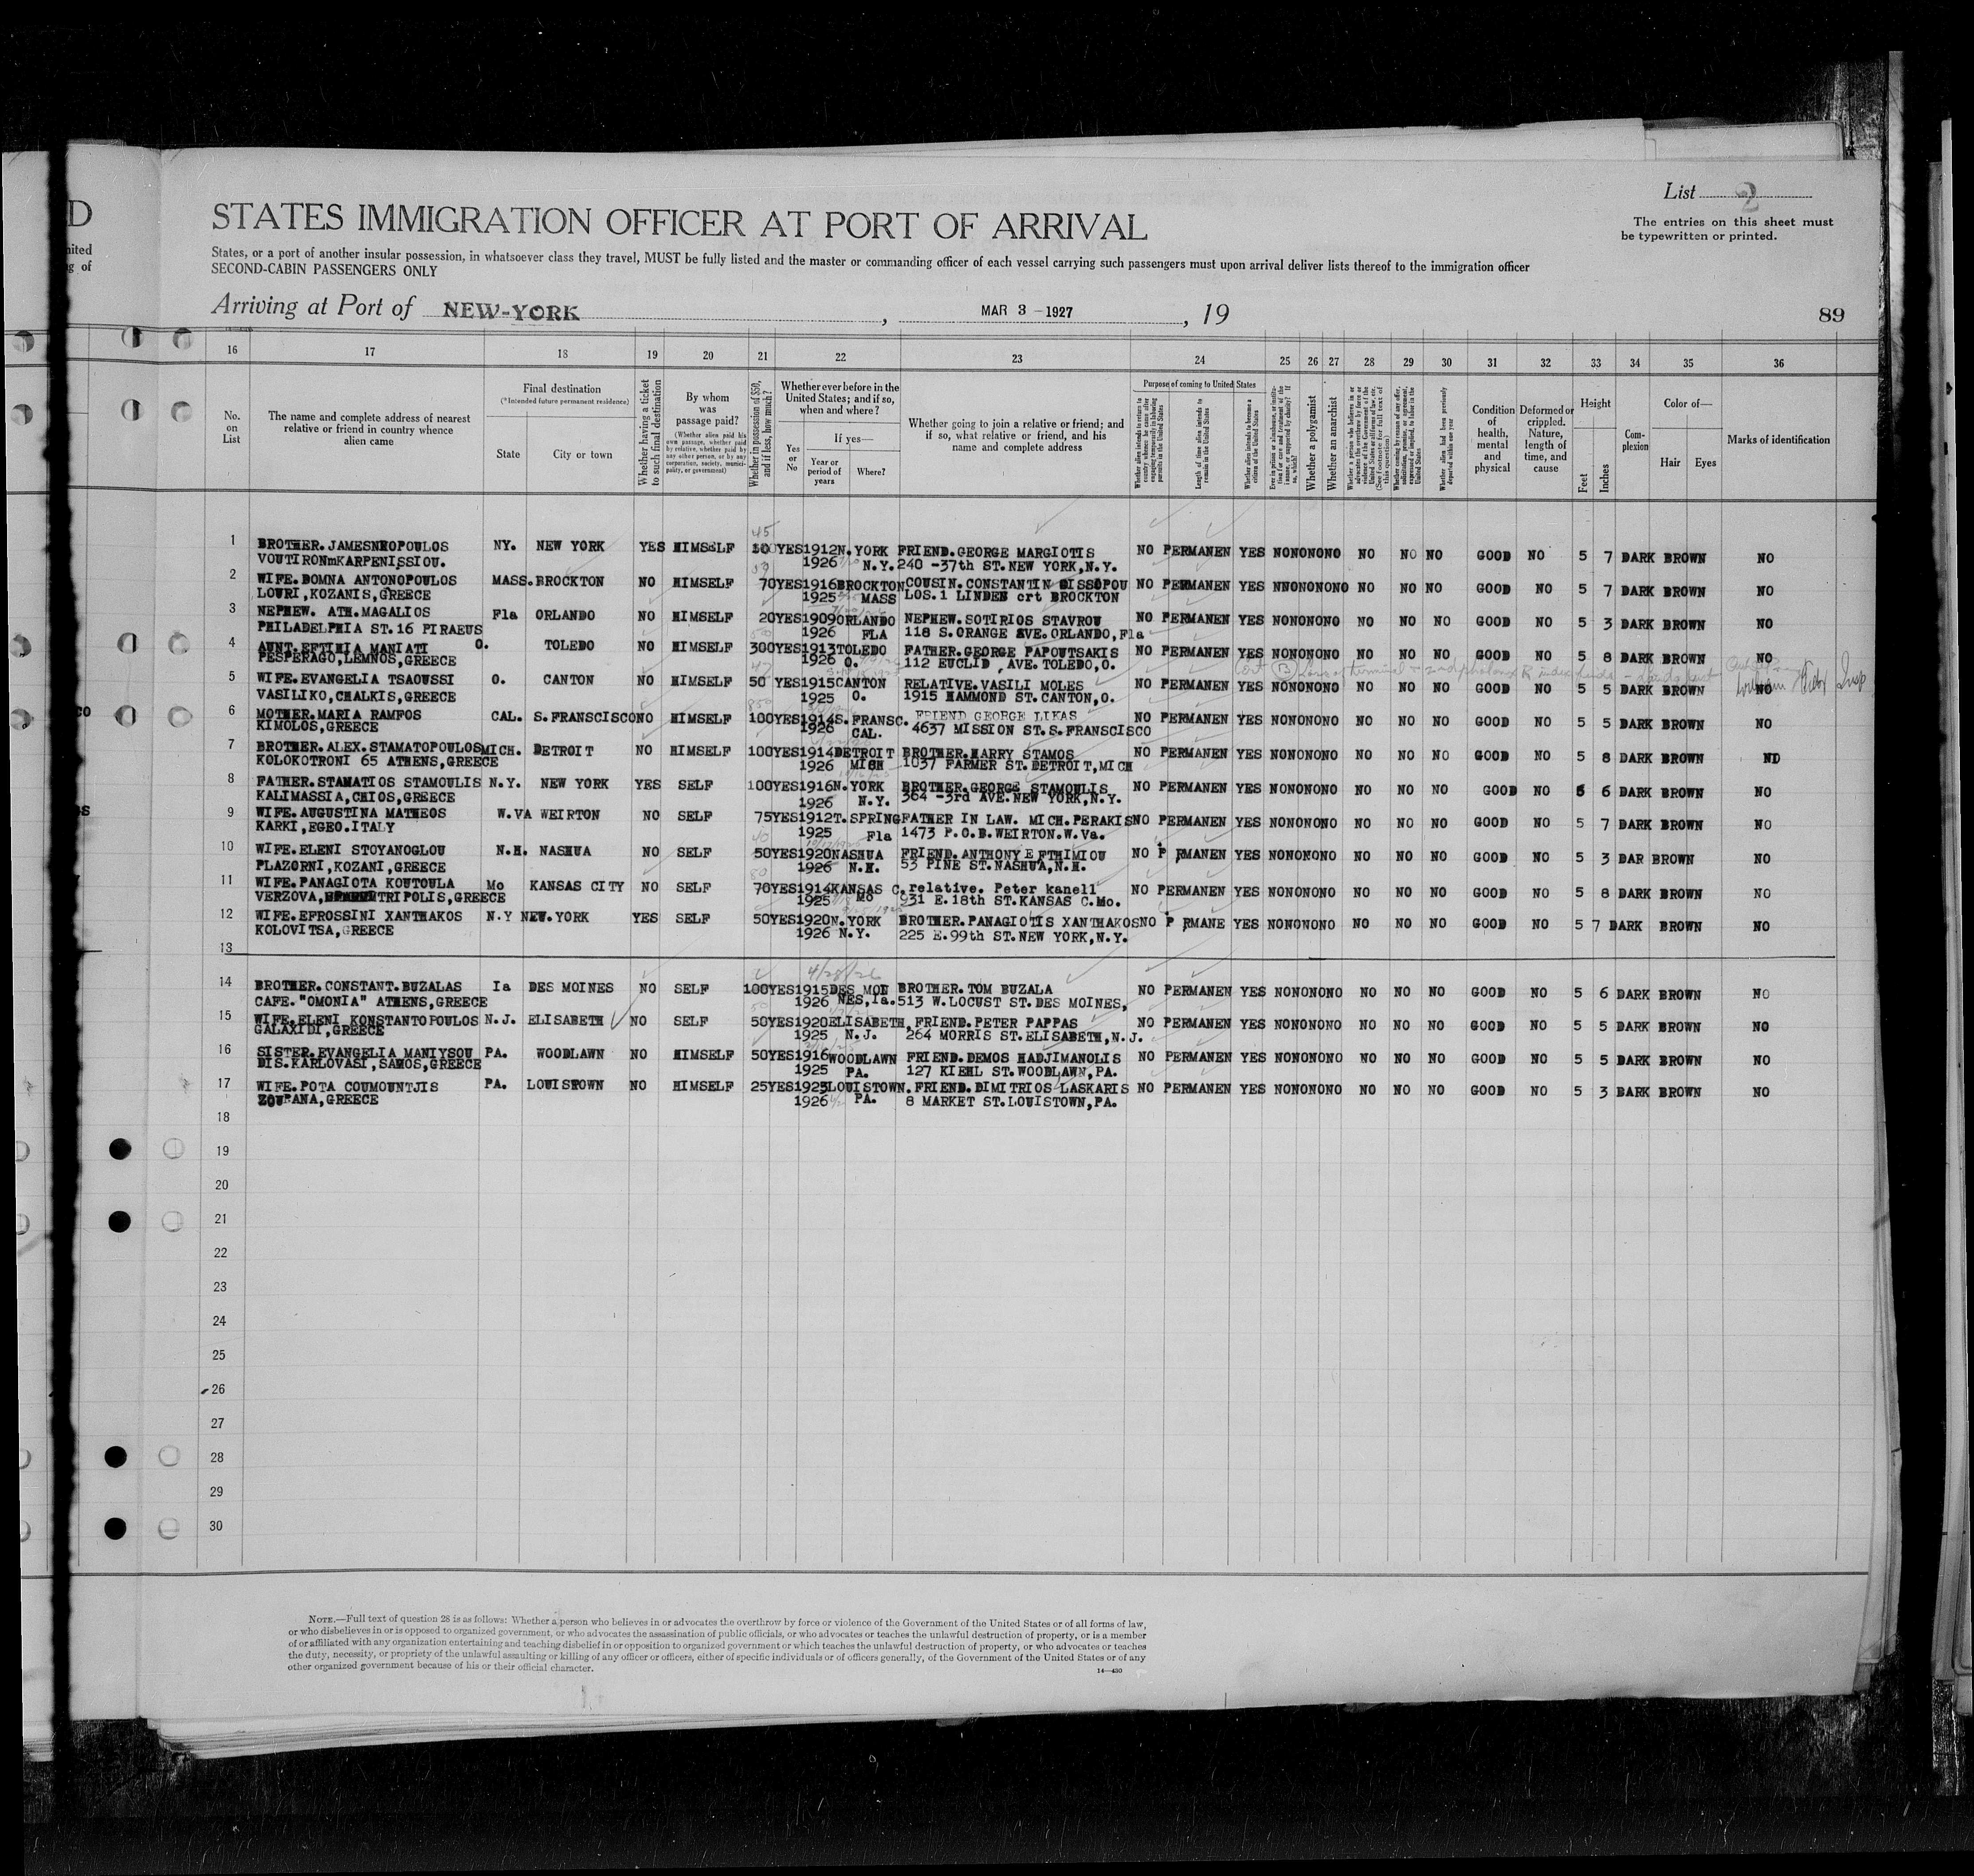 D
List 2
The entries on this sheet must
be typewritten or printed.
STATES IMMIGRATION OFFICER AT PORT OF ARRIVAL
nited
g of
States, or a port of another insular possession, in whatsoever class they travel, MUST be fully listed and the master or commanding officer of each vessel carrying such passengers must upon arrival deliver lists thereof to the immigration officer
SECOND-CABIN PASSENGERS ONLY
Arriving at Port of NEW-YORK , MAR 3 - 1927 , 19
89
16 17 18 19 20 21 22 23 24 25 26 27 28 29 30 31 32 33 34 35 36
No. on List
The name and complete address of nearest relative or friend in country whence alien came
Final destination
(*Intended future permanent residence)
State City or town
Whether having a ticket to such final destination
By whom was passage paid?
(Whether alien paid his own passage, whether paid by relative, whether paid by any other person, or by any corporation, society, municipality, or government)
Whether in possession of $50, and if less, how much?
Whether ever before in the United States; and if so, when and where?
Yes or No
If yes—
Year or period of years Where?
Whether going to join a relative or friend; and if so, what relative or friend, and his name and complete address
Purpose of coming to United States
Length of time alien intends to remain in the United States
Whether alien intends to become a citizen of the United States
Whether a polygamist
Whether an anarchist
Condition of health, mental and physical
Deformed or crippled. Nature, length of time, and cause
Height
Feet Inches
Complexion
Color of—
Hair Eyes
Marks of identification
1 BROTHER.JAMESNROPOULOS NY. NEW YORK YES HIMSELF YES1912N.YORK FRIEND.GEORGE MARGIOTIS NO PERMANEN YES NONONONO NO NO NO GOOD NO 5 7 DARK BROWN NO
VOUTIRONmKARPENISSIOU. 1926 N.Y.240 -37th ST.NEW YORK,N.Y.
2 WIFE.DOMNA ANTONOPOULOS MASS.BROCKTON NO HIMSELF 70YES1916BROCKTON COUSIN.CONSTANTIN DISSOPOU NO PERMANEN YES NNONONONO NO NO NO GOOD NO 5 7 DARK BROWN NO
LOURI,KOZANIS,GREECE 1925 MASS LOS.1 LINDEN crt BROCKTON
3 NEPHEW. ATH.MAGALIOS Fla ORLANDO NO HIMSELF 20YES1909ORLANDO NEPHEW.SOTIRIOS STAVROU NO PERMANEN YES NONONONO NO NO NO GOOD NO 5 3 DARK BROWN NO
PHILADELPHIA ST.16 PIRAEUS 1926 FLA 118 S.ORANGE AVE.ORLANDO,Fla
4 AUNT.EFTIHIA MANIATI O. TOLEDO NO HIMSELF 300YES1913TOLEDO FATHER.GEORGE PAPOUTSAKIS NO PERMANEN YES NONONONO NO NO NO GOOD NO 5 8 DARK BROWN NO
PESPERAGO,LEMNOS,GREECE 1926 O. 112 EUCLID ,AVE.TOLEDO,O.
5 WIFE.EVANGELIA TSAOUSSI O. CANTON NO HIMSELF 50 YES1915CANTON RELATIVE.VASILI MOLES NO PERMANEN YES NONONONO NO NO NO GOOD NO 5 5 DARK BROWN NO
VASILIKO,CHALKIS,GREECE 1925 O. 1915 HAMMOND ST.CANTON,O.
6 MOTHER.MARIA RAMFOS CAL. S.FRANSCISCO NO HIMSELF 100YES1914S.FRANSC. FRIEND GEORGE LIKAS NO PERMANEN YES NONONONO NO NO NO GOOD NO 5 5 DARK BROWN NO
KIMOLOS,GREECE 1926 CAL. 4637 MISSION ST.S.FRANSCISCO
7 BROTHER.ALEX.STAMATOPOULOS MICH. DETROIT NO HIMSELF 100YES1914DETROIT BROTHER.HARRY STAMOS NO PERMANEN YES NONONONO NO NO NO GOOD NO 5 8 DARK BROWN ND
KOLOKOTRONI 65 ATHENS,GREECE 1926 MICH 1037 FARMER ST.DETROIT,MICH
8 FATHER.STAMATIOS STAMOULIS N.Y. NEW YORK YES SELF 100YES1916N.YORK BROTHER.GEORGE STAMOULIS NO PERMANEN YES NONONONO NO NO NO GOOD NO 5 6 DARK BROWN NO
KALIMASSIA,CHIOS,GREECE 1926 N.Y. 364 -3rd AVE.NEW YORK,N.Y.
9 WIFE.AUGUSTINA MATHEOS W.VA WEIRTON NO SELF 75YES1912T.SPRING FATHER IN LAW. MICH.PERAKIS NO PERMANEN YES NONONONO NO NO NO GOOD NO 5 7 DARK BROWN NO
KARKI,EGEO.ITALY 1925 Fla 1473 P.O.B.WEIRTON.W.Va.
10 WIFE.ELENI STOYANOGLOU N.H. NASHUA NO SELF 50YES1920NASHUA FRIEND.ANTHONY EFTHIMIOU NO P RMANEN YES NONONONO NO NO NO GOOD NO 5 3 DAR BROWN NO
PLAZORNI,KOZANI,GREECE 1926 N.H. 53 PINE ST.NASHUA,N.H.
11 WIFE.PANAGIOTA KOUTOULA Mo KANSAS CITY NO SELF 70YES1914KANSAS C. relative. Peter kanell NO PERMANEN YES NONONONO NO NO NO GOOD NO 5 8 DARK BROWN NO
VERZOVA, TRIPOLIS,GREECE 1925 Mo 931 E.18th ST.KANSAS C.Mo.
12 WIFE.EFROSSINI XANTHAKOS N.Y NEW.YORK YES SELF 50YES1920N.YORK BROTHER.PANAGIOTIS XANTHAKOS NO P RMANE YES NONONONO NO NO NO GOOD NO 5 7 DARK BROWN NO
KOLOVITSA,GREECE 1926 N.Y. 225 E.99th ST.NEW YORK,N.Y.
13
4/28/26
14 BROTHER.CONSTANT.BUZALAS Ia DES MOINES NO SELF 100YES1915DES MOU BROTHER.TOM BUZALA NO PERMANEN YES NONONONO NO NO NO GOOD NO 5 6 DARK BROWN NO
CAFE."OMONIA" ATHENS,GREECE 1926 NES,Ia.513 W.LOCUST ST.DES MOINES,
15 WIFE.ELENI KONSTANTOPOULOS N.J. ELISABETH NO SELF 50YES1920ELISABETH,FRIEND.PETER PAPPAS NO PERMANEN YES NONONONO NO NO NO GOOD NO 5 5 DARK BROWN NO
GALAXIDI,GREECE 1925 N.J. 264 MORRIS ST.ELISABETH,N.J.
16 SISTER.EVANGELIA MANIYSOU PA. WOODLAWN NO HIMSELF 50YES1916WOODLAWN FRIEND.DEMOS HADJIMANOLIS NO PERMANEN YES NONONONO NO NO NO GOOD NO 5 5 DARK BROWN NO
DIS.KARLOVASI,SAMOS,GREECE 1925 PA. 127 KIEHL ST.WOODLAWN,PA.
17 WIFE.POTA COUMOUNTJIS PA. LOUISTOWN NO HIMSELF 25YES1923LOUISTOWN.FRIEND.DIMITRIOS LASKARIS NO PERMANEN YES NONONONO NO NO NO GOOD NO 5 3 DARK BROWN NO
ZOUPANA,GREECE 1926 PA. 8 MARKET ST.LOUISTOWN,PA.
18
19
20
21
22
23
24
25
26
27
28
29
30
NOTE.—Full text of question 28 is as follows: Whether a person who believes in or advocates the overthrow by force or violence of the Government of the United States or of all forms of law,
or who disbelieves in or is opposed to organized government, or who advocates the assassination of public officials, or who advocates or teaches the unlawful destruction of property, or is a member
of or affiliated with any organization entertaining and teaching disbelief in or opposition to organized government or which teaches the unlawful destruction of property, or who advocates or teaches
the duty, necessity, or propriety of the unlawful assaulting or killing of any officer or officers, either of specific individuals or of officers generally, of the Government of the United States or of any
other organized government because of his or their official character.
14—430